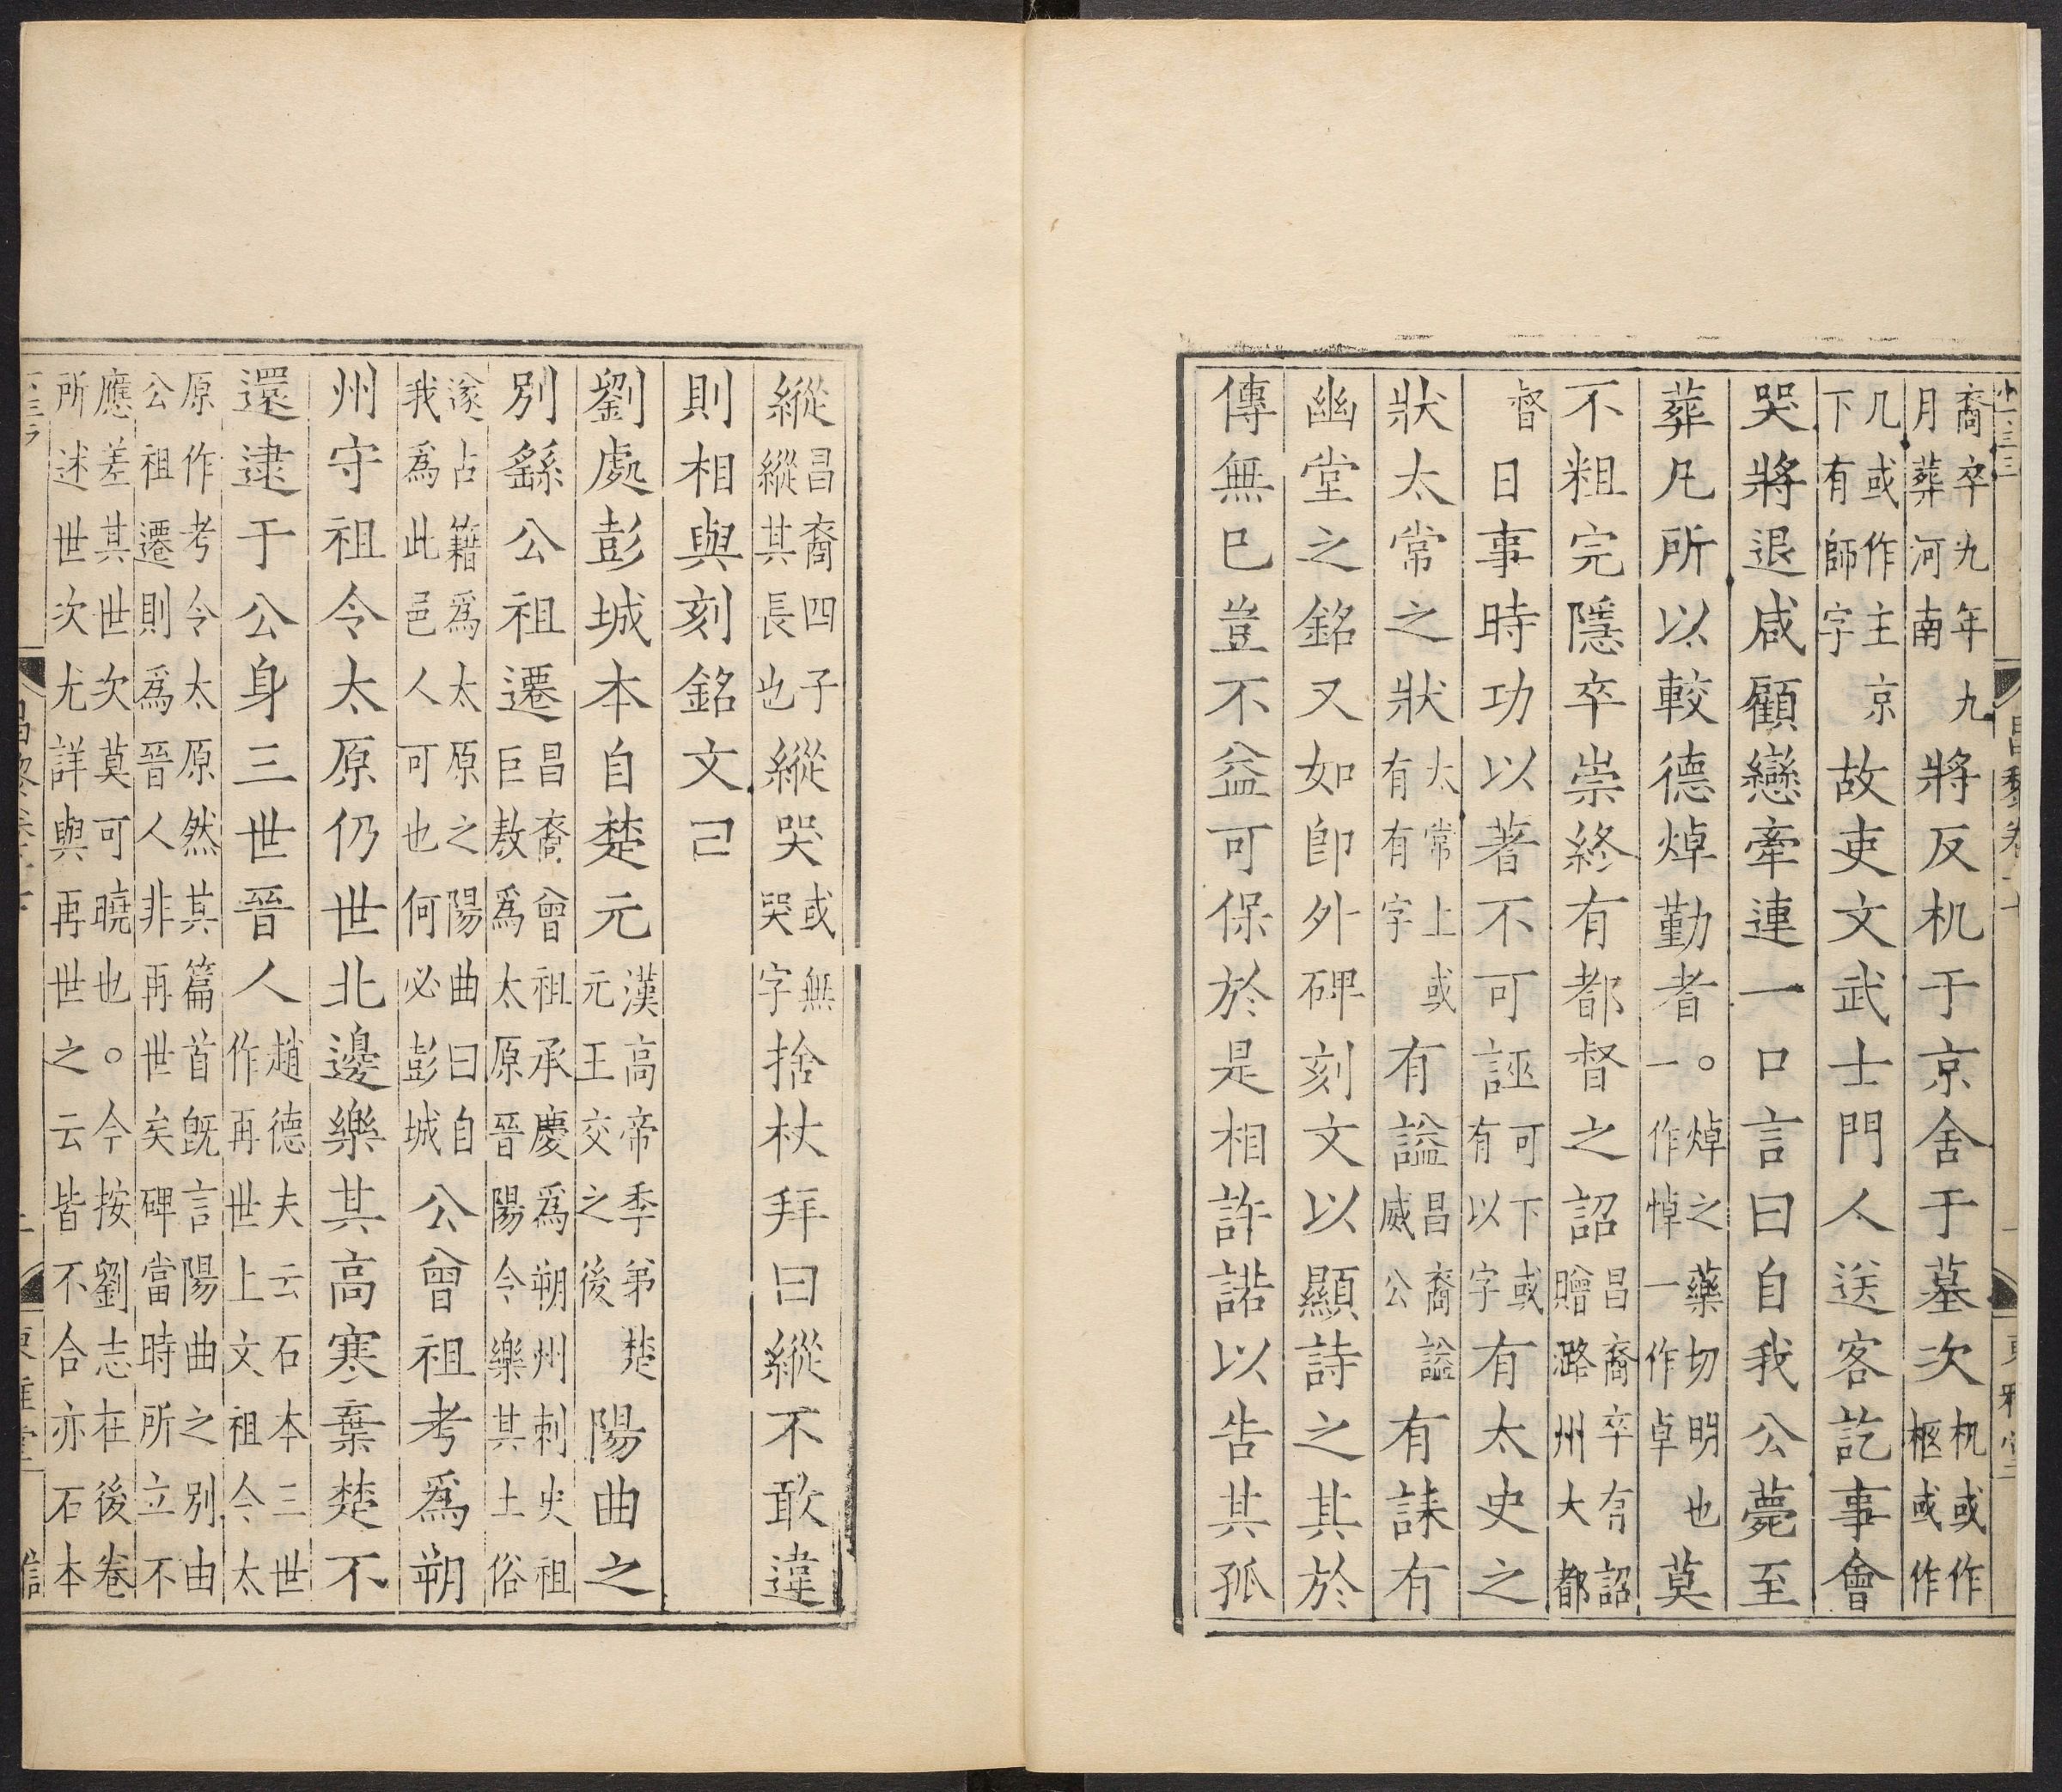 昌黎卷
東雅堂
裔卒九年九月葬河南將反机于京舍于墓次机或作柩或作
几或作主京下有師字故吏文武士門人送客訖事會
哭將退咸顧戀牽連一口言曰自我公薨至
葬凡所以較德焯勤者。焯之藥切明也一作悼一作卓莫
不粗完隱卒崇終有都督之詔昌裔卒有詔贈潞州大都
督日事時功以著不可誣可下或有以字有太史之
狀太常之狀太常上或有有字有謚昌裔謚威公有誄有
幽堂之銘又如即外碑刻文以顯詩之其於
傳無已豈不益可保於是相許諾以告其孤
縱昌裔四子縱其長也縱哭或無哭字捨杖拜曰縱不敢違
則相與刻銘文己
劉處彭城本自楚元漢高帝季弟楚元王交之後陽曲之
別繇公祖遷昌裔曾祖承慶爲朔州刺史祖巨敖爲太原晉陽令樂其土俗
遂占籍爲太原之陽曲曰自我爲此邑人可也何必彭城公曾祖考爲朔
州守祖令太原仍世北邊樂其高寒棄楚不
還逮于公身三世晉人趙德夫云石本三世作再世上文祖令太
原作考令太原然其篇首既言陽曲之別由公祖遷則爲晉人非再世矣碑當時所立不
應差其世次莫可曉也。今按劉志在後卷所述世次尤詳與再世之云皆不合亦石本